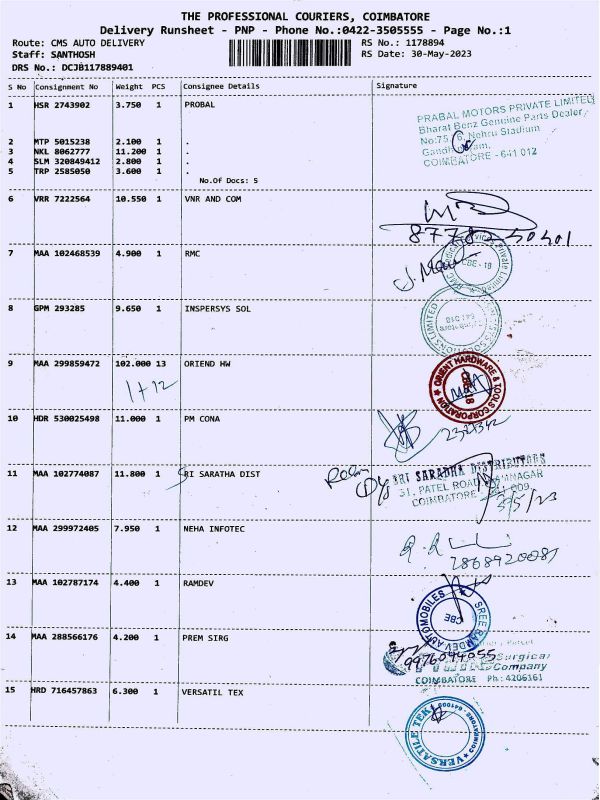 THE PROFESSIONAL COURIERS, COIMBATORE
Delivery Runsheet - PNP - Phone No.:0422-3505555 - Page No.:1
Route: CMS AUTO DELIVERY
RS No.: 1178894
Staff: SANTHOSH
RS Date: 30-May-2023
DRS No.: DCJB117889401
S No Consignment No Weight PCS Consignee Details Signature
1 HSR 2743902 3.750 1 PROBAL
PRABAL MOTORS PRIVATE LIMITED
Bharat Benz Genuine Parts Dealer
Nehru Stadium
COIMBATORE - 641 012
2 MTP 5015238 2.100 1 .
3 NKL 8062777 11.200 1 .
4 SLM 320849412 2.800 1 .
5 TRP 2585050 3.600 1 .
No.Of Docs: 5
6 VRR 7222564 10.550 1 VNR AND COM
7 MAA 102468539 4.900 1 RMC
CBE - 18
8 GPM 293285 9.650 1 INSPERSYS SOL
9 MAA 299859472 102.000 13 ORIEND HW
1+12
ORIENT HARDWARE & TOOLS CORPORATION
CBE-18
10 HDR 530025498 11.000 1 PM CONA
11 MAA 102774087 11.800 1 SRI SARATHA DIST
SRI SARADHA DISTRIBUTORS
31, PATEL ROAD, RAMNAGAR
COIMBATORE
12 MAA 299972405 7.950 1 NEHA INFOTEC
13 MAA 102787174 4.400 1 RAMDEV
SREE RAMDEV AUTOMOBILES
CBE
14 MAA 288566176 4.200 1 PREM SIRG
9976044055
Surgical
Company
COIMBATORE Ph: 4206161
15 HRD 716457863 6.300 1 VERSATIL TEX
VERSATILE TEK